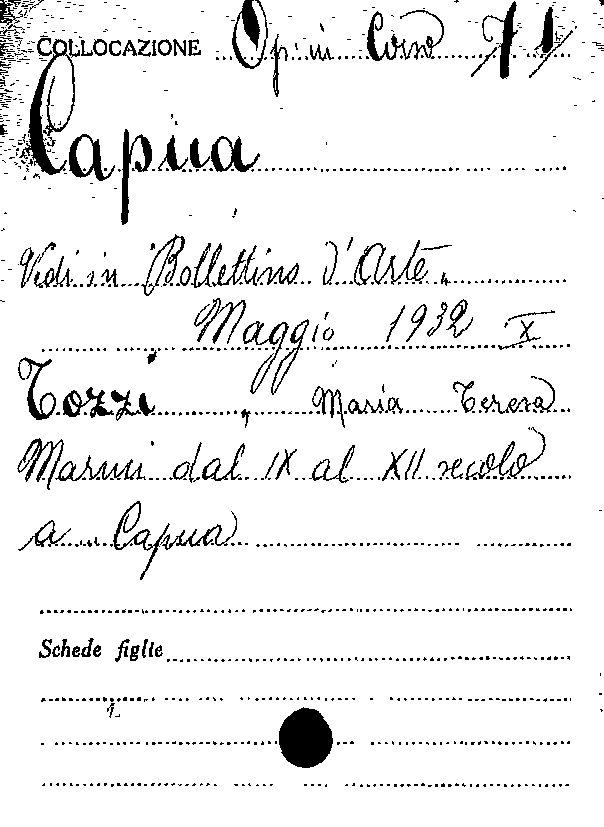 COLLOCAZIONE Op. in Corso 71
Capua
Vedi in "Bollettino d'Arte"
Maggio 1932 X
Tozzi, Maria Teresa
Marmi dal IX al XII secolo
a Capua
Schede figlie